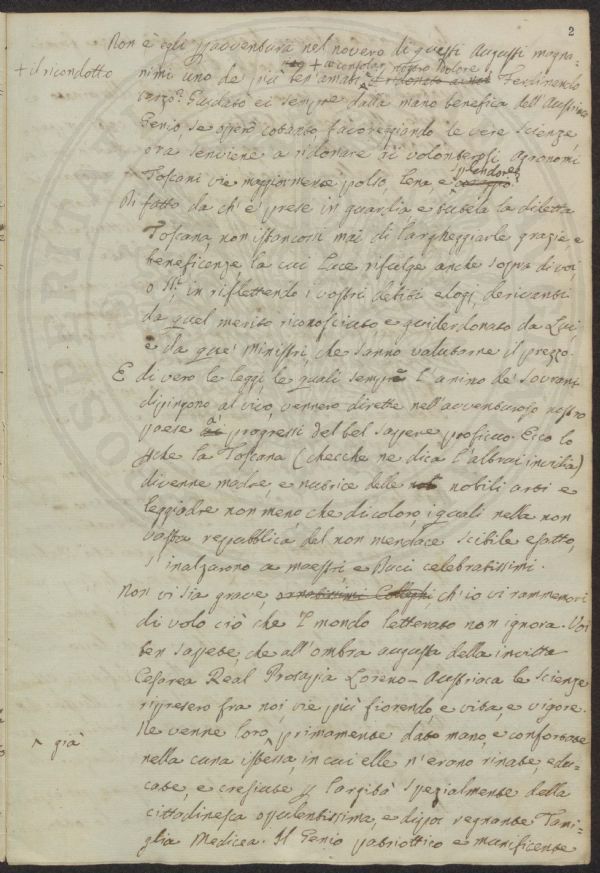 2
Non è egli p avventura nel novero di questi Augusti magna-
+ il ricondotto
+ a consolar nostro dolore
nimi uno de' più ben amati Ferdinando
Terzo? Guidato ei sempre dalla mano benefica dell'Austriaco
Genio se operò cotanto, favoreggiando le vere scienze,
ora senviene a ridonare ai volonterosi Agronomi
splendore
Toscani vie maggiormente polso, lena e
Di fatto da ch'è prese in guardia, e tutela la diletta
Toscana, non istancossi mai di largheggiarle grazie, e
beneficenze la cui Luce rifulge anche sopra di voi,
o Sri, in riflettendo i vostri debiti elogj derivanti
da quel merito riconosciuto e guiderdonato da Lui,
e da que' Ministri, che sanno valutarne il prezzo.
E di vero le leggi, le quali sempre l'animo de' Sovrani
dipingono al vivo, vennero dirette nell'avventuroso nostro
paese a' progressi del bel sapere proficuo. Ecco lo
pche la Toscana (checche ne dica l'altrui invidia)
divenne madre, e nutrice delle nobili arti e
leggiadre non meno che di coloro, i quali nella non
vasta repubblica del non mendace scibile esatto,
s'inalzarono a maestri, e Duci celebratissimi.
Non vi sia grave, ornatissimi Colleghi, ch'io vi rammemori
di volo ciò che 'l mondo letterato non ignora. Voi
ben sapete, che all'ombra augusta della invitta
Cesarea Real Prosapia Loreno-Austriaca le scienze
ripresero fra noi vie più fiorendo, e vita, e vigore.
Ne venne loro primamente dato mano, e confortate
^ già
nella cuna istessa, in cui elle n'erano rinate edu-
cate, e cresciute p largità spezialmente della
cittadinesca opulentissima, e dipoi regnante Fami-
glia Medicea. Il Genio patriottico e munificente